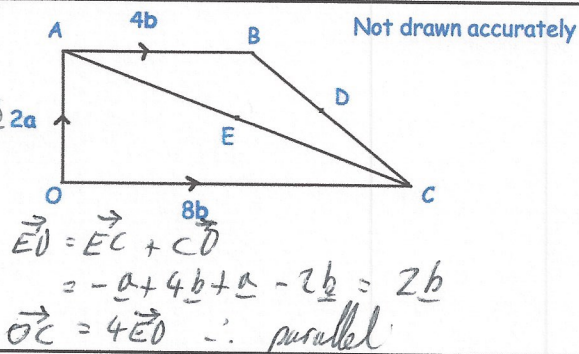 4b
A B Not drawn accurately
2a
D
E
O C
8b
ED = EC + CD
= -a + 4b + a - 2b = 2b
OC = 4ED ∴ parallel